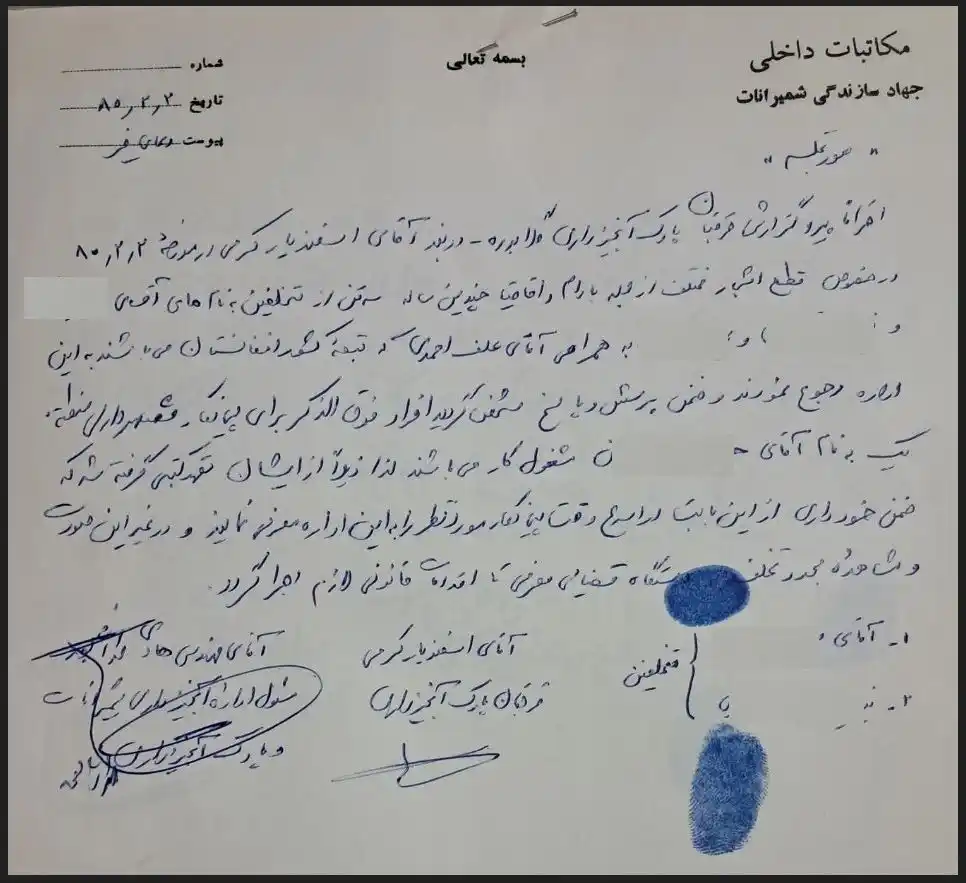 مکاتبات داخلی
جهاد سازندگی شمیرانات
بسمه تعالی
شماره
تاریخ ۸۰٫۲٫۲
پیوست
" صورتجلسه "
احتراماً پیرو گزارش قرقبان پارک آبخیزداری گلابدره - دربند آقای اسفندیار کرمی در مورخه ۸۰٫۲٫۲
در خصوص قطع اشجار مختلف از جمله بادام و اقاقیا چندین ساله سه تن از متخلفین به نام های آقای
و : ) و : به همراهی آقای علف احمدی که تبعه کشور افغانستان می باشند به این
اداره رجوع نمودند و ضمن پرسش و پاسخ مشخص گردید افراد فوق الذکر برای پیمانکار شهرداری منطقه
یک به نام آقای ن مشغول کار می باشند لذا ذیلاً از ایشان تعهد کتبی گرفته شد که
ضمن خودداری از این بابت در اسرع وقت پیمانکار مورد نظر را به این اداره معرفی نمایند و در غیر این صورت
و مشاهده مجدد تخلف دستگاه قضایی معرفی تا اقدامات قانونی لازم اجرا گردد.
۱- آقای
۲-
متخلفین
آقای اسفندیار کرمی
قرقبان پارک آبخیزداری
آقای مهندس هادی
مسئول اداره آبخیزداری شمیرانات
و پارک آبخیزداری